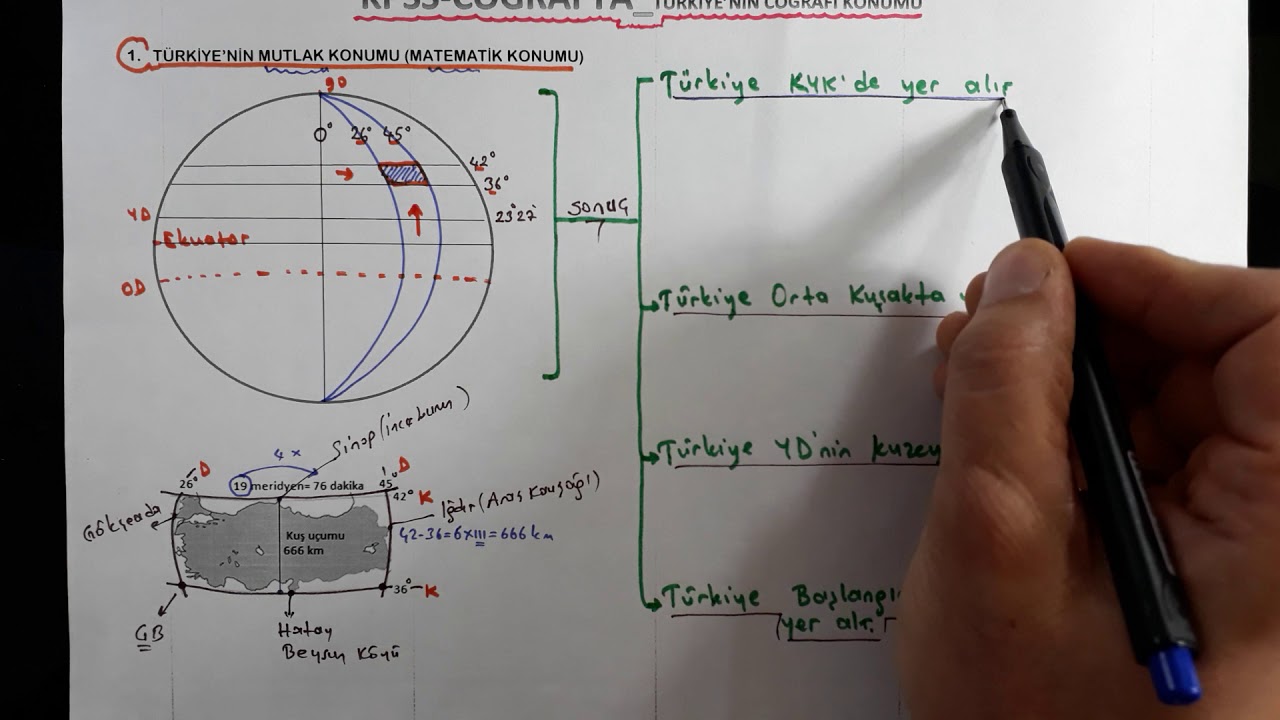 KPSS-COĞRAFYA_TÜRKİYE'NİN COĞRAFİ KONUMU
1. TÜRKİYE'NİN MUTLAK KONUMU (MATEMATİK KONUMU)
90
0° 26° 45°
42°
36°
YD 23°27'
Ekuator
OD
sonuç
Türkiye KYK'de yer alır
Türkiye Orta Kuşakta
Türkiye YD'nin kuzey
Türkiye Başlangı
yer alır.
Sinop (İnceburun)
4 x
26° D 19 meridyen= 76 dakika 45° D
42° K
Gökçeada
Iğdır (Aras Kavşağı)
Kuş uçumu
666 km
42-36=6x111=666 km
36° K
GB
Hatay
Beysun Köyü